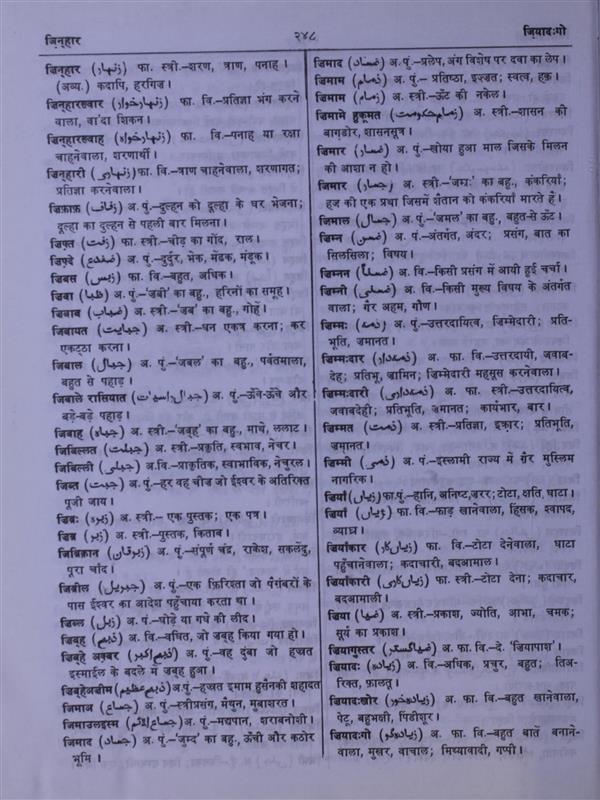 जिन्हार
२४८
ज़ियादःगो
जिन्हार (زنہار) फा. स्त्री.–शरण, त्राण, पनाह ।
(अव्य.) कदापि, हरगिज़ ।
जिन्हारख्वार (زنہار خوار) फा. वि.–प्रतिज्ञा भंग करने
वाला, वा'दा शिकन ।
जिन्हारख्वाह (زنہار خواہ) फा. वि.–पनाह या रक्षा
चाहनेवाला, शरणार्थी ।
जिन्हारी (زنہاری) फा. वि.–त्राण चाहनेवाला, शरणागत;
प्रतिज्ञा करनेवाला ।
जिफ़ाफ़ (زفاف) अ. पुं.–दुल्हन को दूल्हा के घर भेजना;
दूल्हा का दुल्हन से पहली बार मिलना ।
जिफ़्त (زفت) फा. स्त्री.–चीड़ का गोंद, राल ।
जिफ़्दे (ضفدع) अ. पुं.–दुर्दुर, भेक, मेंढक, मंडूक ।
जिबस (زبس) फा. वि.–बहुत, अधिक ।
जिबा (ظبا) अ. पुं.–'ज़बी' का बहु., हरिनों का समूह ।
जिबाब (ضباب) अ. पुं.–'ज़ब' का बहु., गोहें ।
जिबायत (جبایت) अ. स्त्री.–धन एकत्र करना; कर
एकट्ठा करना ।
जिबाल (جبال) अ. पुं.–'जबल' का बहु., पर्वतमाला,
बहुत से पहाड़ ।
जिबाले रासियात (جبال راسیات) अ. पुं.–ऊँचे-ऊँचे और
बड़े-बड़े पहाड़ ।
जिबाह (جباہ) अ. स्त्री.–'जबह' का बहु., माथे, ललाट ।
जिबिल्लत (جبلت) अ. स्त्री.–प्रकृति, स्वभाव, नेचर ।
जिबिल्ली (جبلی) अ. वि.–प्राकृतिक, स्वाभाविक, नेचुरल ।
जिब्त (جبت) अ. पुं.–हर वह चीज जो ईश्वर के अतिरिक्त
पूजी जाय ।
जिब्रः (زبرہ) अ. स्त्री.– एक पुस्तक; एक पत्र ।
जिब्र (زبر) अ. स्त्री.–पुस्तक, किताब ।
जिब्रिक़ान (زبرقان) अ. पुं.–संपूर्ण चंद्र, राकेश, सकलेंदु,
पूरा चाँद ।
जिब्रील (جبریل) अ. पुं.–एक फ़िरिश्ता जो पैग़ंबरों के
पास ईश्वर का आदेश पहुँचाया करता था ।
जिब्ल (زبل) अ. पुं.–घोड़े या गधे की लीद ।
जिब्ह (ذبح) अ. वि.–वधित, जो जबह किया गया हो ।
जिब्हे अक्बर (ذبح اکبر) अ. पुं.–वह दुंबा जो हज्रत
इस्माईल के बदले में जब्ह हुआ ।
जिब्हेअज़ीम (ذبح عظیم) अ. पुं.–हज्रत इमाम हुसैनकी शहादत
जिमाअ (جماع) अ. पुं.–स्त्रीप्रसंग, मैथुन, मुबाशरत ।
जिमाउलइस्म (جماع الاثم) अ. पुं.–मद्यपान, शराबनोशी ।
जिमाद (جماد) अ. पुं.–'जुम्द' का बहु., ऊँची और कठोर
भूमि ।
जिमाद (ضماد) अ. पुं.–प्रलेप, अंग विशेष पर दवा का लेप ।
जिमाम (ذمام) अ. पुं.– प्रतिष्ठा, इज़्ज़त; स्वत्व, हक़ ।
जिमाम (زمام) अ. स्त्री.–ऊँट की नकेल ।
जिमामे हुकूमत (زمام حکومت) अ. स्त्री.–शासन की
बागडोर, शासनसूत्र ।
जिमार (ضمار) अ. पुं.–खोया हुआ माल जिसके मिलन
की आशा न हो ।
जिमार (جمار) अ. स्त्री.–'जम्रः' का बहु., कंकरियाँ;
हज की एक प्रथा जिसमें शैतान को कंकरियाँ मारते हैं ।
जिमाल (جمال) अ. पुं.–'जमल' का बहु., बहुत-से ऊँट ।
जिम्न (ضمن) अ. पुं.–अंतर्गत, अंदर; प्रसंग, बात का
सिलसिला; विषय ।
जिम्नन (ضمناً) अ. वि.–किसी प्रसंग में आयी हुई चर्चा ।
जिम्नी (ضمنی) अ. वि.–किसी मुख्य विषय के अंतर्गत
वाला; ग़ैर अहम, गौण ।
जिम्मः (ذمہ) अ. पुं.–उत्तरदायित्व, जिम्मेदारी; प्रति-
भूति, जमानत ।
जिम्मःदार (ذمہ دار) अ. फा. वि.–उत्तरदायी, जवाब-
देह; प्रतिभू, ज़ामिन; जिम्मेदारी महसूस करनेवाला ।
जिम्मःदारी (ذمہ داری) अ. फा. स्त्री.–उत्तरदायित्व,
जवाबदेही; प्रतिभूति, ज़मानत; कार्यभार, बार ।
जिम्मत (ذمت) अ. स्त्री.–प्रतिज्ञा, इक़ार; प्रतिभूति,
ज़मानत ।
जिम्मी (ذمی) अ. पुं.–इस्लामी राज्य में ग़ैर मुस्लिम
नागरिक ।
ज़ियाँ (زیاں) फा. पुं.–हानि, अनिष्ट, ज़रर; टोटा, क्षति, घाटा ।
ज़ियाँ (ژیاں) फा. वि.–फाड़ खानेवाला, हिंसक, श्वापद,
व्याघ्र ।
ज़ियाँकार (زیاں کار) फा. वि.–टोटा देनेवाला, घाटा
पहुँचानेवाला; कदाचारी, बदआमाल ।
ज़ियाँकारी (زیاں کاری) फा. स्त्री.–टोटा देना; कदाचार,
बदआमाली ।
ज़िया (ضیا) अ. स्त्री.–प्रकाश, ज्योति, आभा, चमक;
सूर्य का प्रकाश ।
ज़ियागुस्तर (ضیا گستر) अ. फा. वि.–दे. 'ज़ियापाश' ।
ज़ियादः (زیادہ) अ. वि.–अधिक, प्रचुर, बहुत; तिअ-
रिक्त, फ़ालतू ।
ज़ियादःखोर (زیادہ خور) अ. फा. वि.–बहुत खानेवाला,
पेटू, बहुभक्षी, पिंडीशूर ।
ज़ियादःगो (زیادہ گو) अ. फा. वि.–बहुत बातें बनाने-
वाला, मुखर, वाचाल; मिथ्यावादी, गप्पी ।